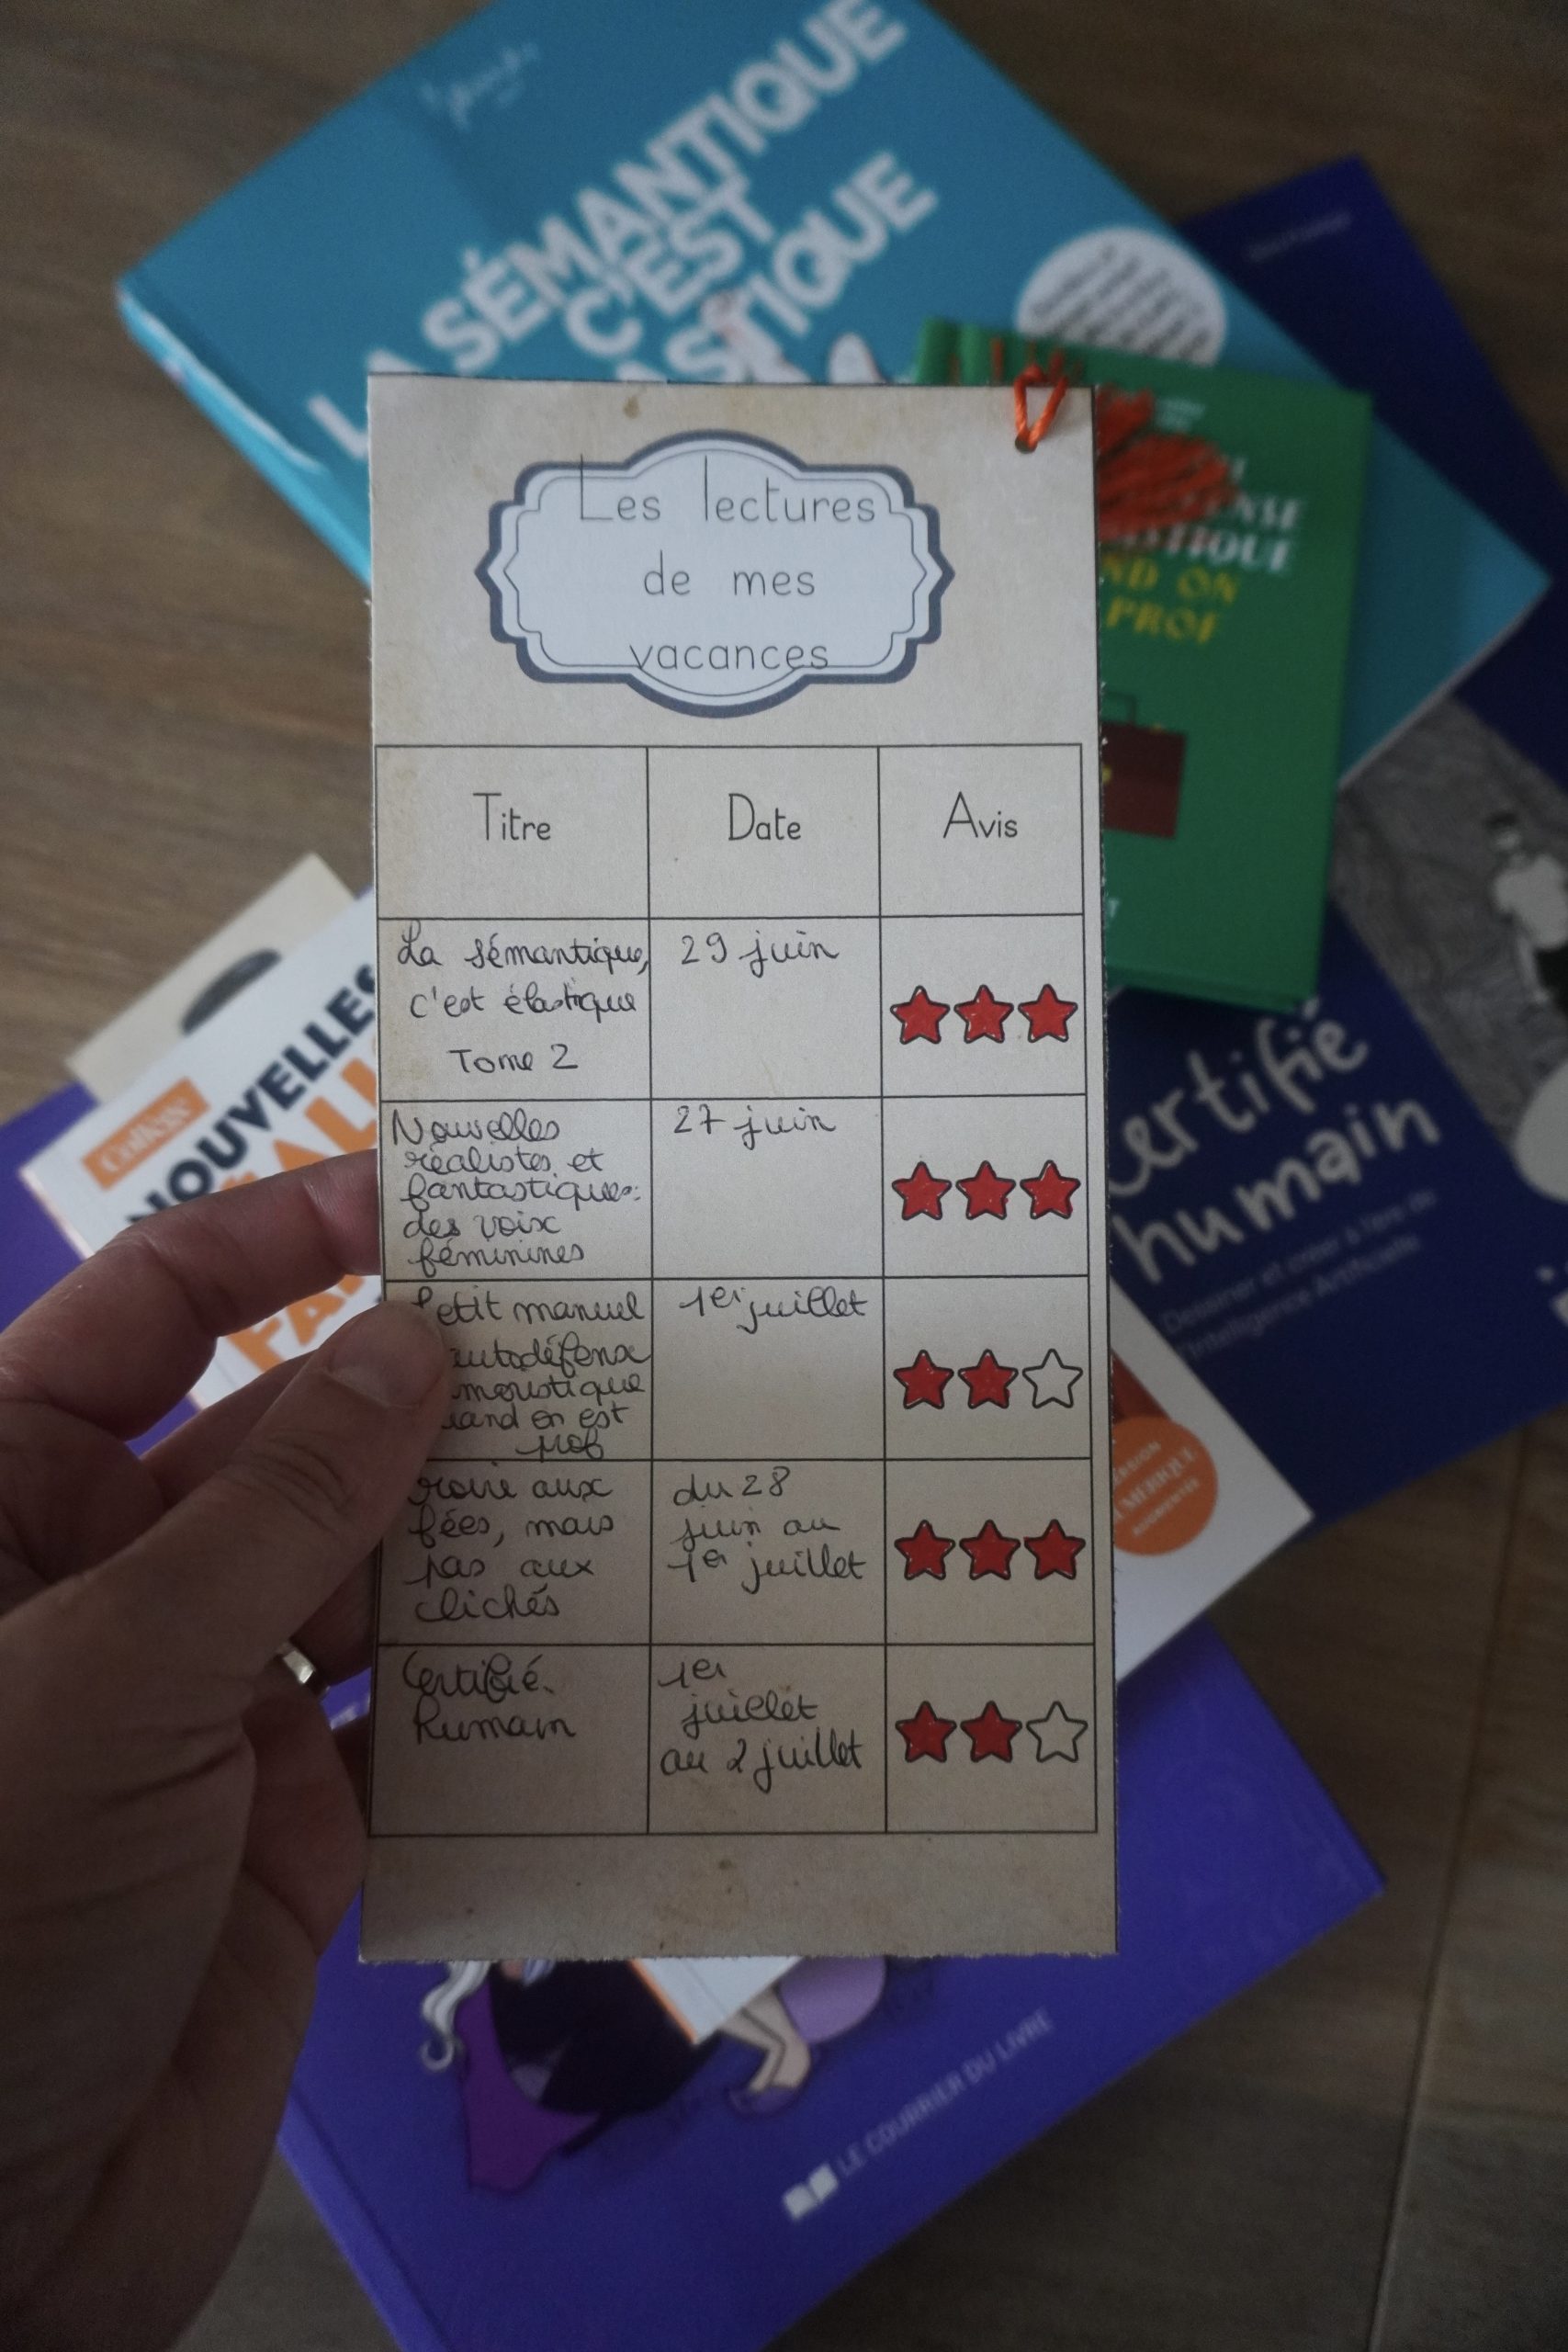 LA SÉMANTIQUE
C'EST
ASTIQUE
Les lectures
de mes
vacances
Titre
Date
Avis
La sémantique,
c'est élastique
Tome 2
29 juin
Nouvelles
réalistes et
fantastiques:
des voix
féminines
27 juin
Petit manuel
autodéfense
mouistique
uand on est
prof
1er juillet
croire aux
fées, mais
pas aux
clichés
du 28
juin au
1er juillet
Certifié
humain
1er
juillet
au 2 juillet
ENSE
ISTIQUE
ND ON
PROF
Collège
NOUVELLES
certifié
humain
Dessiner et créer à l'ère de
l'Intelligence Artificielle
NUMÉRIQUE
LE COURRIER DU LIVRE